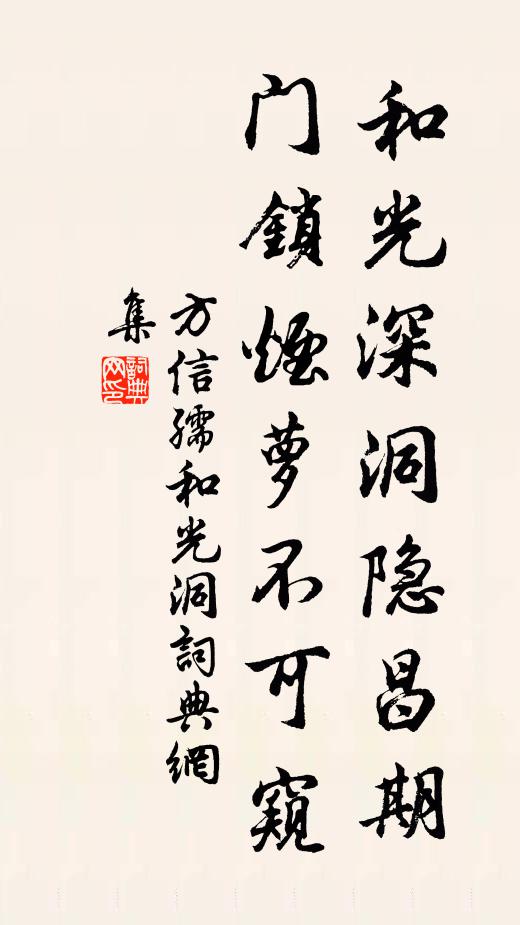 和光深洞隐昌期
门鎖煙萝不可窺
方信孺和光洞詞典網
集
詞典网印